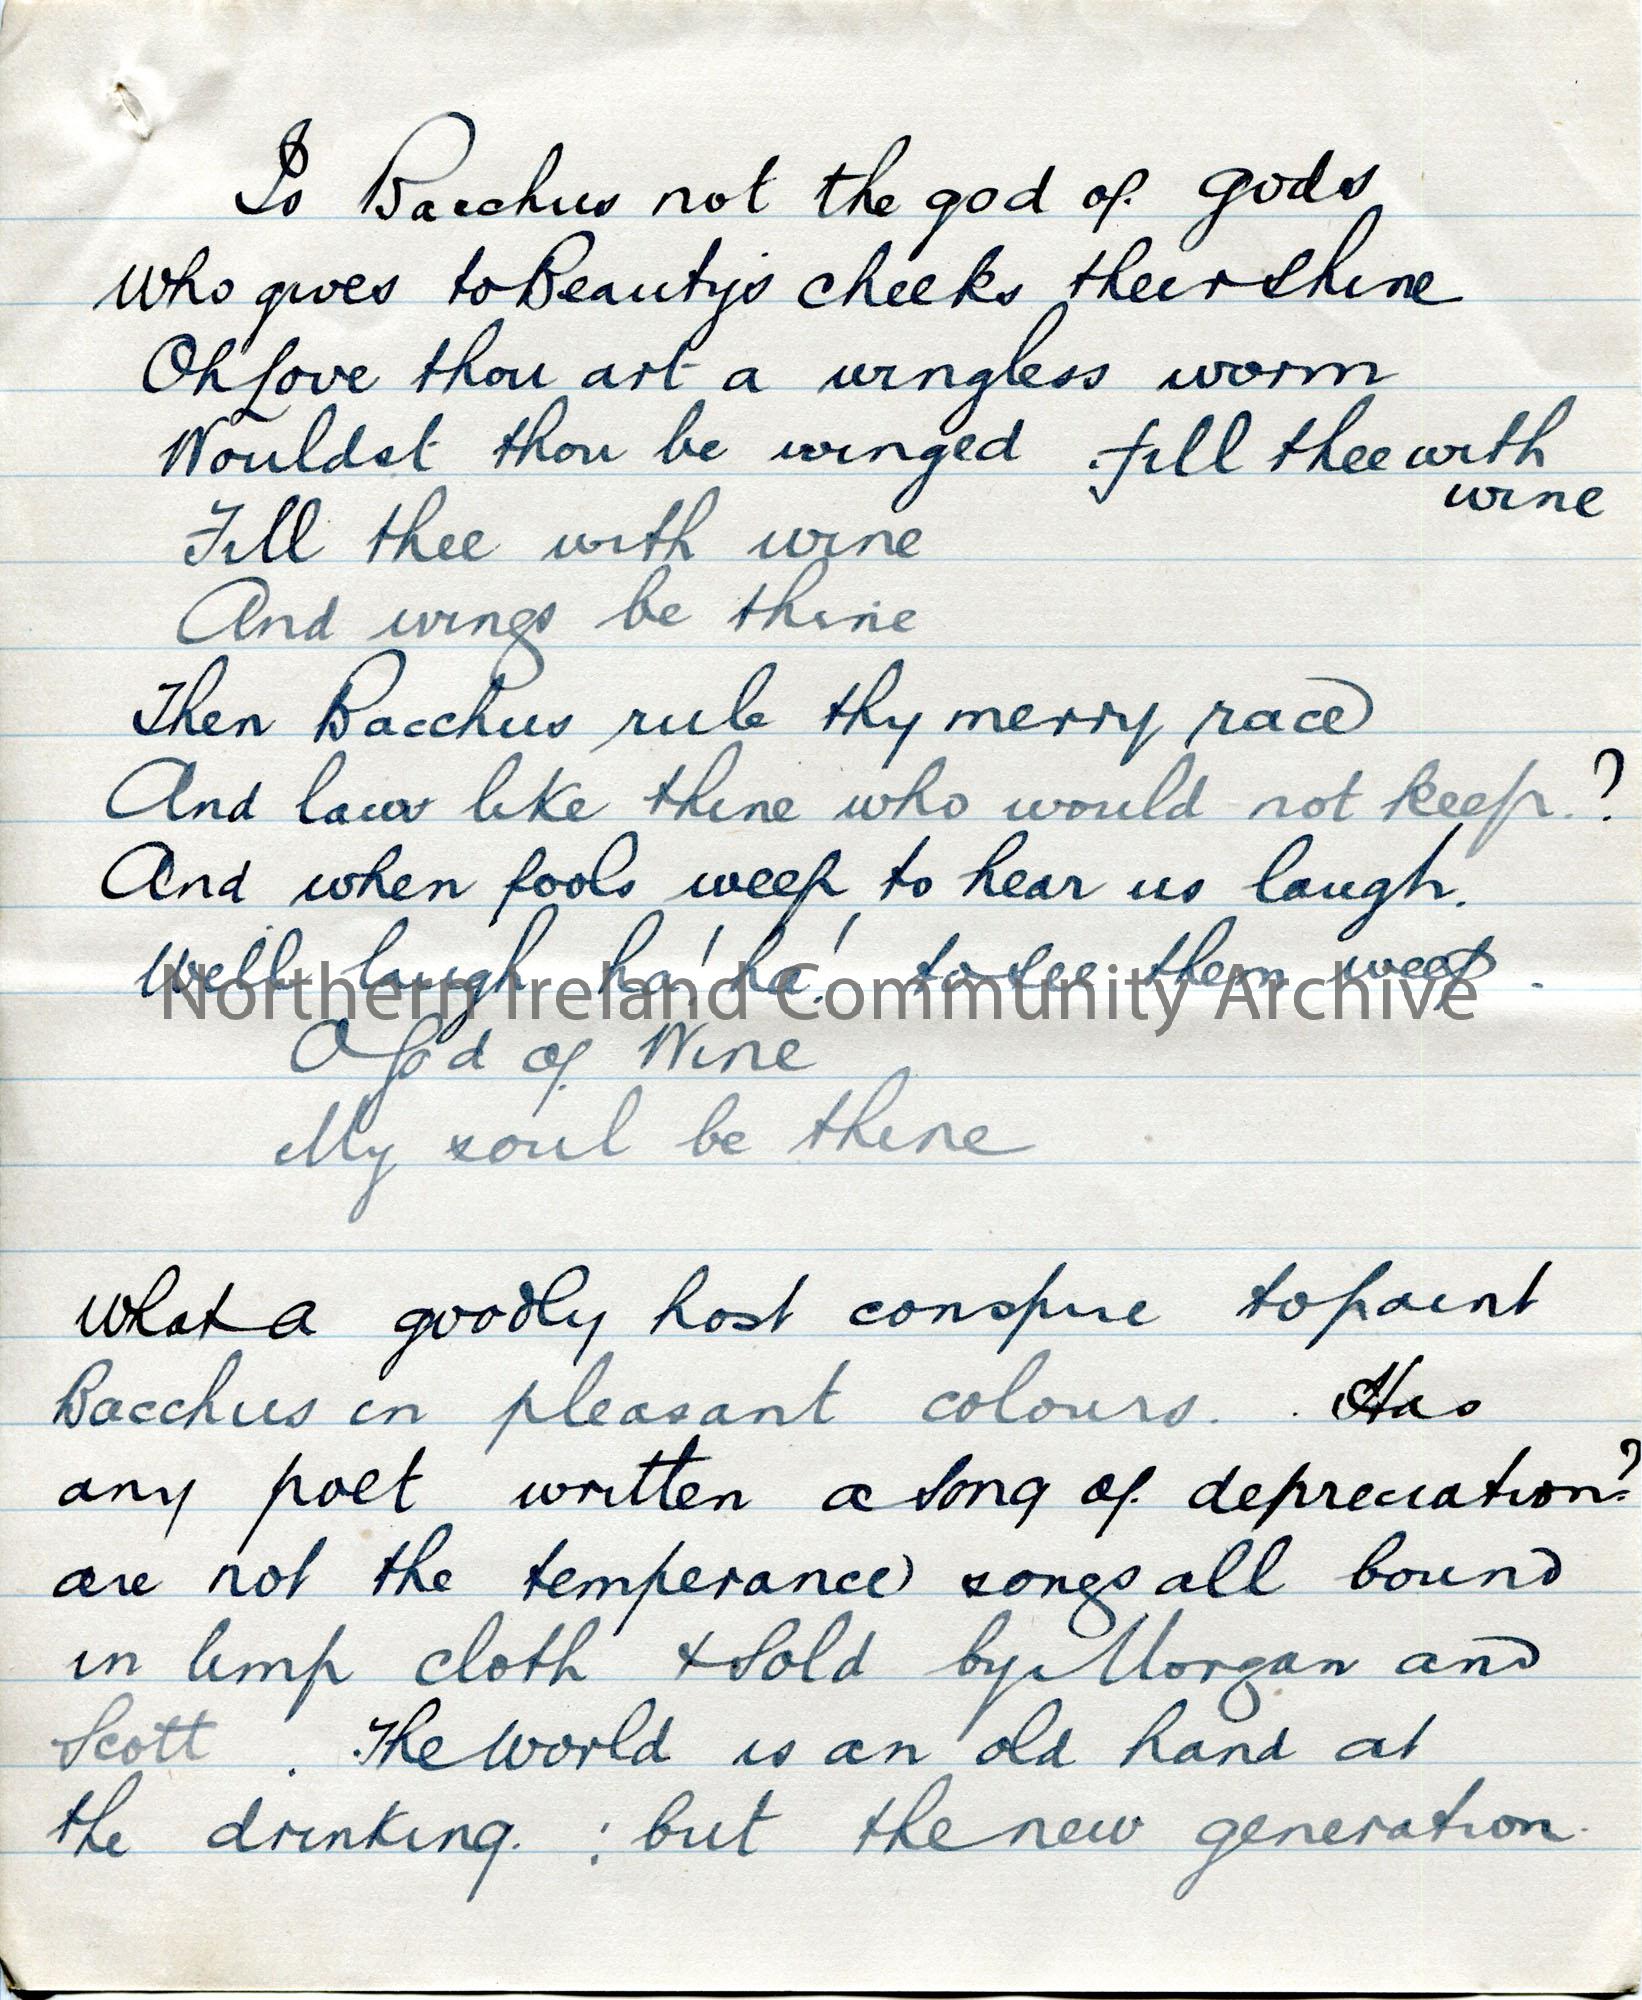 Is Bacchus not the god of gods
Who gives to Beauty's cheeks their shine
Oh Love thou art a wingless worm
Wouldst thou be winged fill thee with
wine
Fill thee with wine
And wings be thine
Then Bacchus rule thy merry race
And law like thine who would not keep.?
And when fools weep to hear us laugh.
We'll laugh ha! ha! to see them weep.
Northern Ireland Community Archive
O God of Wine
My soul be thine
What a goodly host conspire to paint
Bacchus in pleasant colours. Has
any poet written a song of depreciation?
are not the temperance songs all bound
in limp cloth & sold by Morgan and
Scott. The World is an old hand at
the drinking. ; but the new generation.